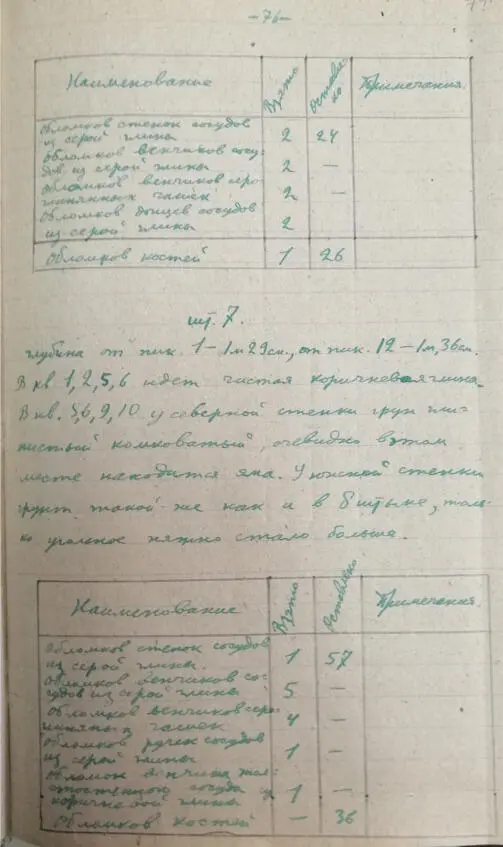 -76-
Наименование Взято Оставле-но Примечания.
Обломков стенок сосудов
из серой глины 2 24
Обломков венчиков сосу-
дов из серой глины 2 —
Обломков венчиков серо-
глиняных чашек 2 —
Обломков донцев сосудов
из серой глины 2
Обломков костей 1 26
шт. 7.
глубина от пик. 1-1м29см., от пик. 12-1м,36см.
В кв 1,2,5,6 идет чистая коричневая глина.
В кв. 5,6,9,10 у северной стенки грун гли-
нистый комковатый, очевидно в этом
месте находится яма. У южной стенки
грунт такой-же как и в 6 штыке, толь-
ко угольное пятно стало больше.
Наименование Взято Оставлено Примечания.
Обломков стенок сосудов
из серой глины. 1 57
Обломков венчиков со-
судов из серой глины 5 —
Обломков венчиков серо-
глиняных чашек 4 —
Обломков ручек сосудов
из серой глины 1 —
Обломок венчика тол-
стостенного сосуда из
коричневой глины 1 —
Обломков костей — 36